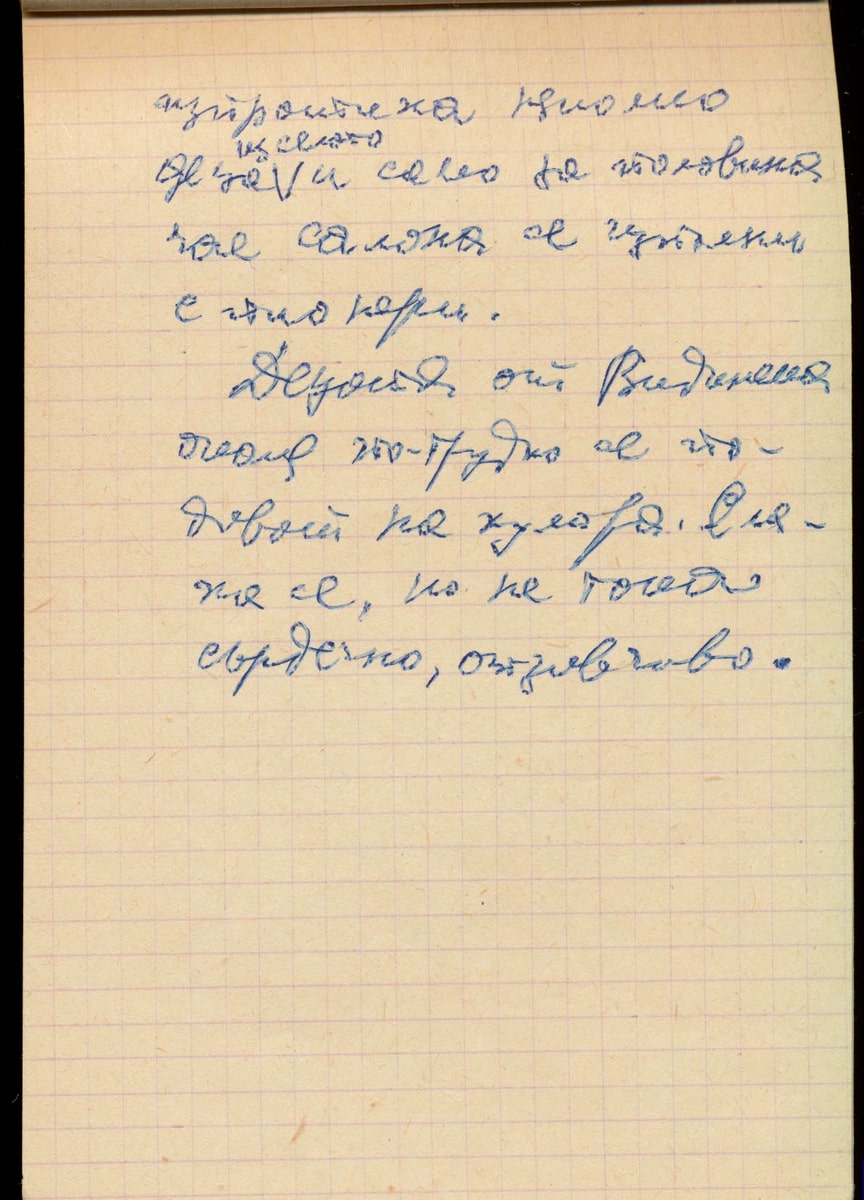 изпратиха няколко
деца из селото и само за половина
час салона се изпълни
с пионери.
Децата от Видинско
още по-трудно се по-
дават на хумора. Сме-
ха се, но не така
сърдечно, отзивчиво.